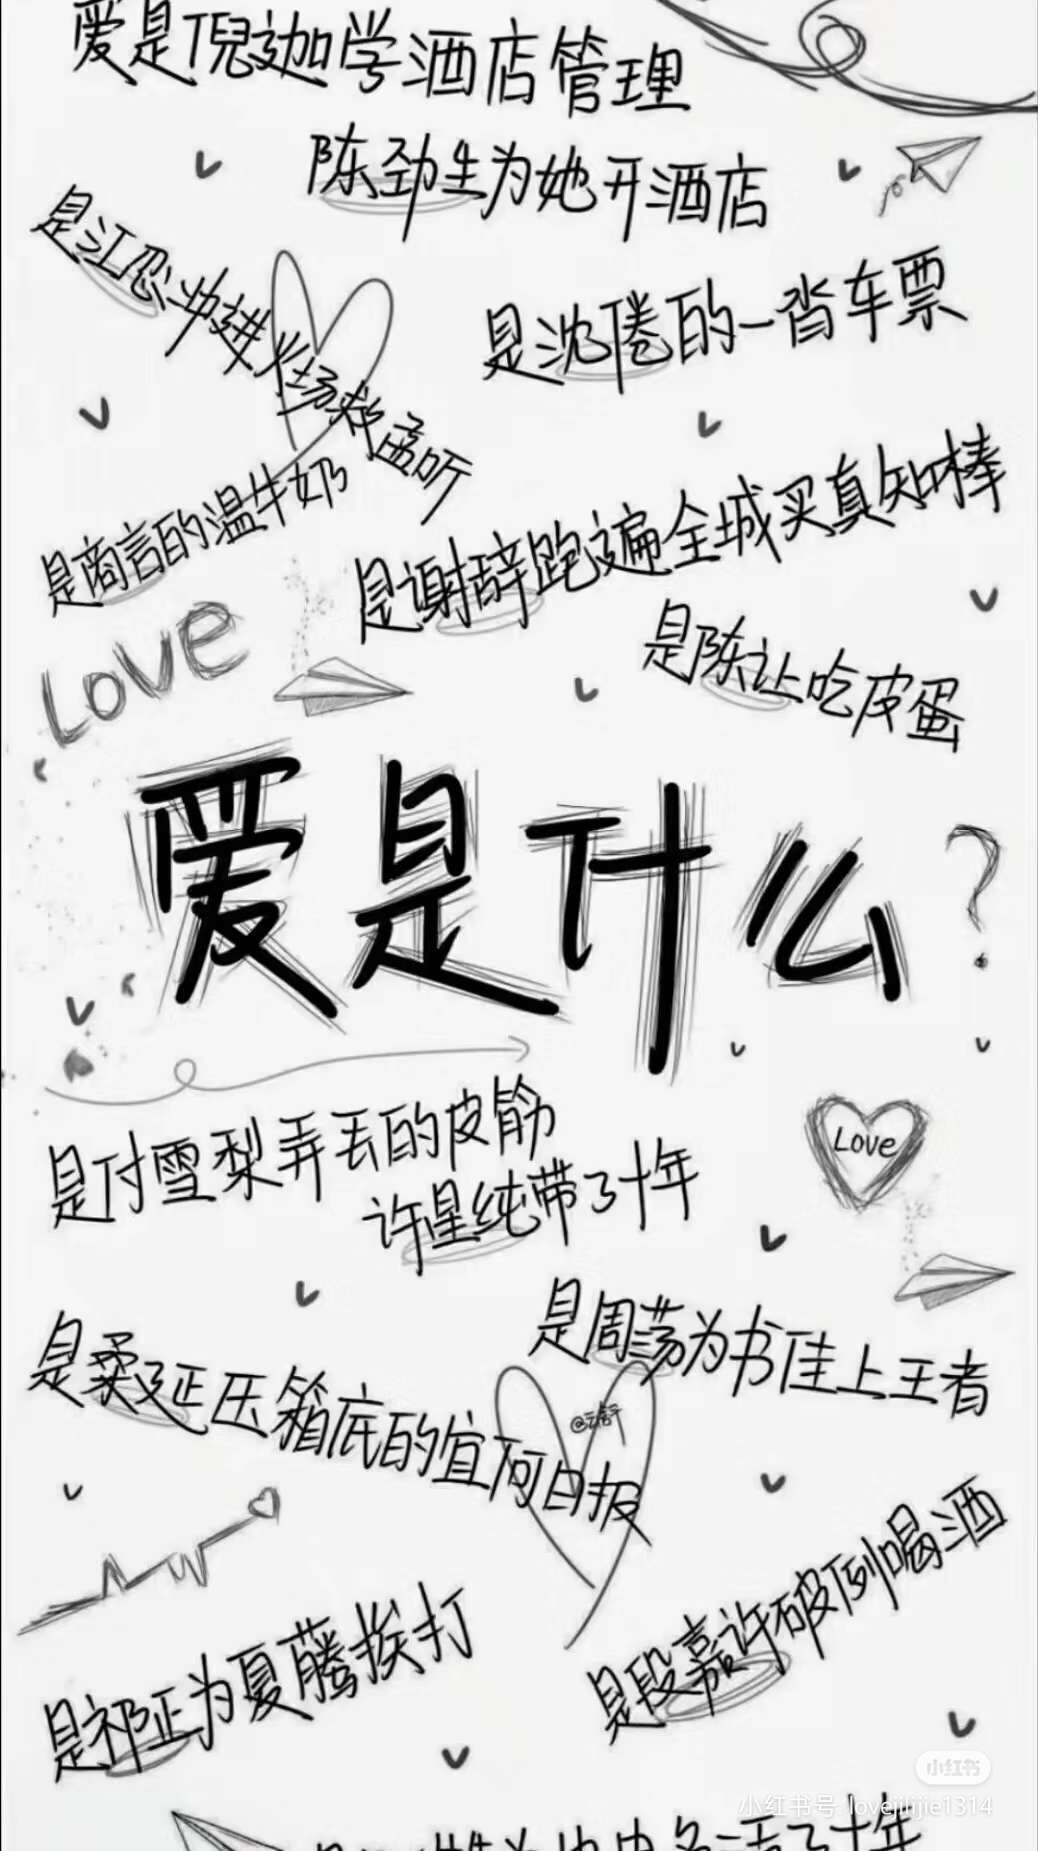 爱是倪迦学酒店管理
陈劲生为她开酒店
是江忍冲进火场救孟听
是沈倦的一沓车票
是商言的温牛奶
是谢辞跑遍全城买真知棒
是陈让吃皮蛋
Love
爱是什么?
是付雪梨弄丢的皮筋
许星纯带了十年
Love
是周荡为书佳上王者
是柔延压箱底的宜河日报
@云舒
是段嘉许破例喝酒
是祁正为夏藤挨打
小红书
小红书号: lovejijijie1314